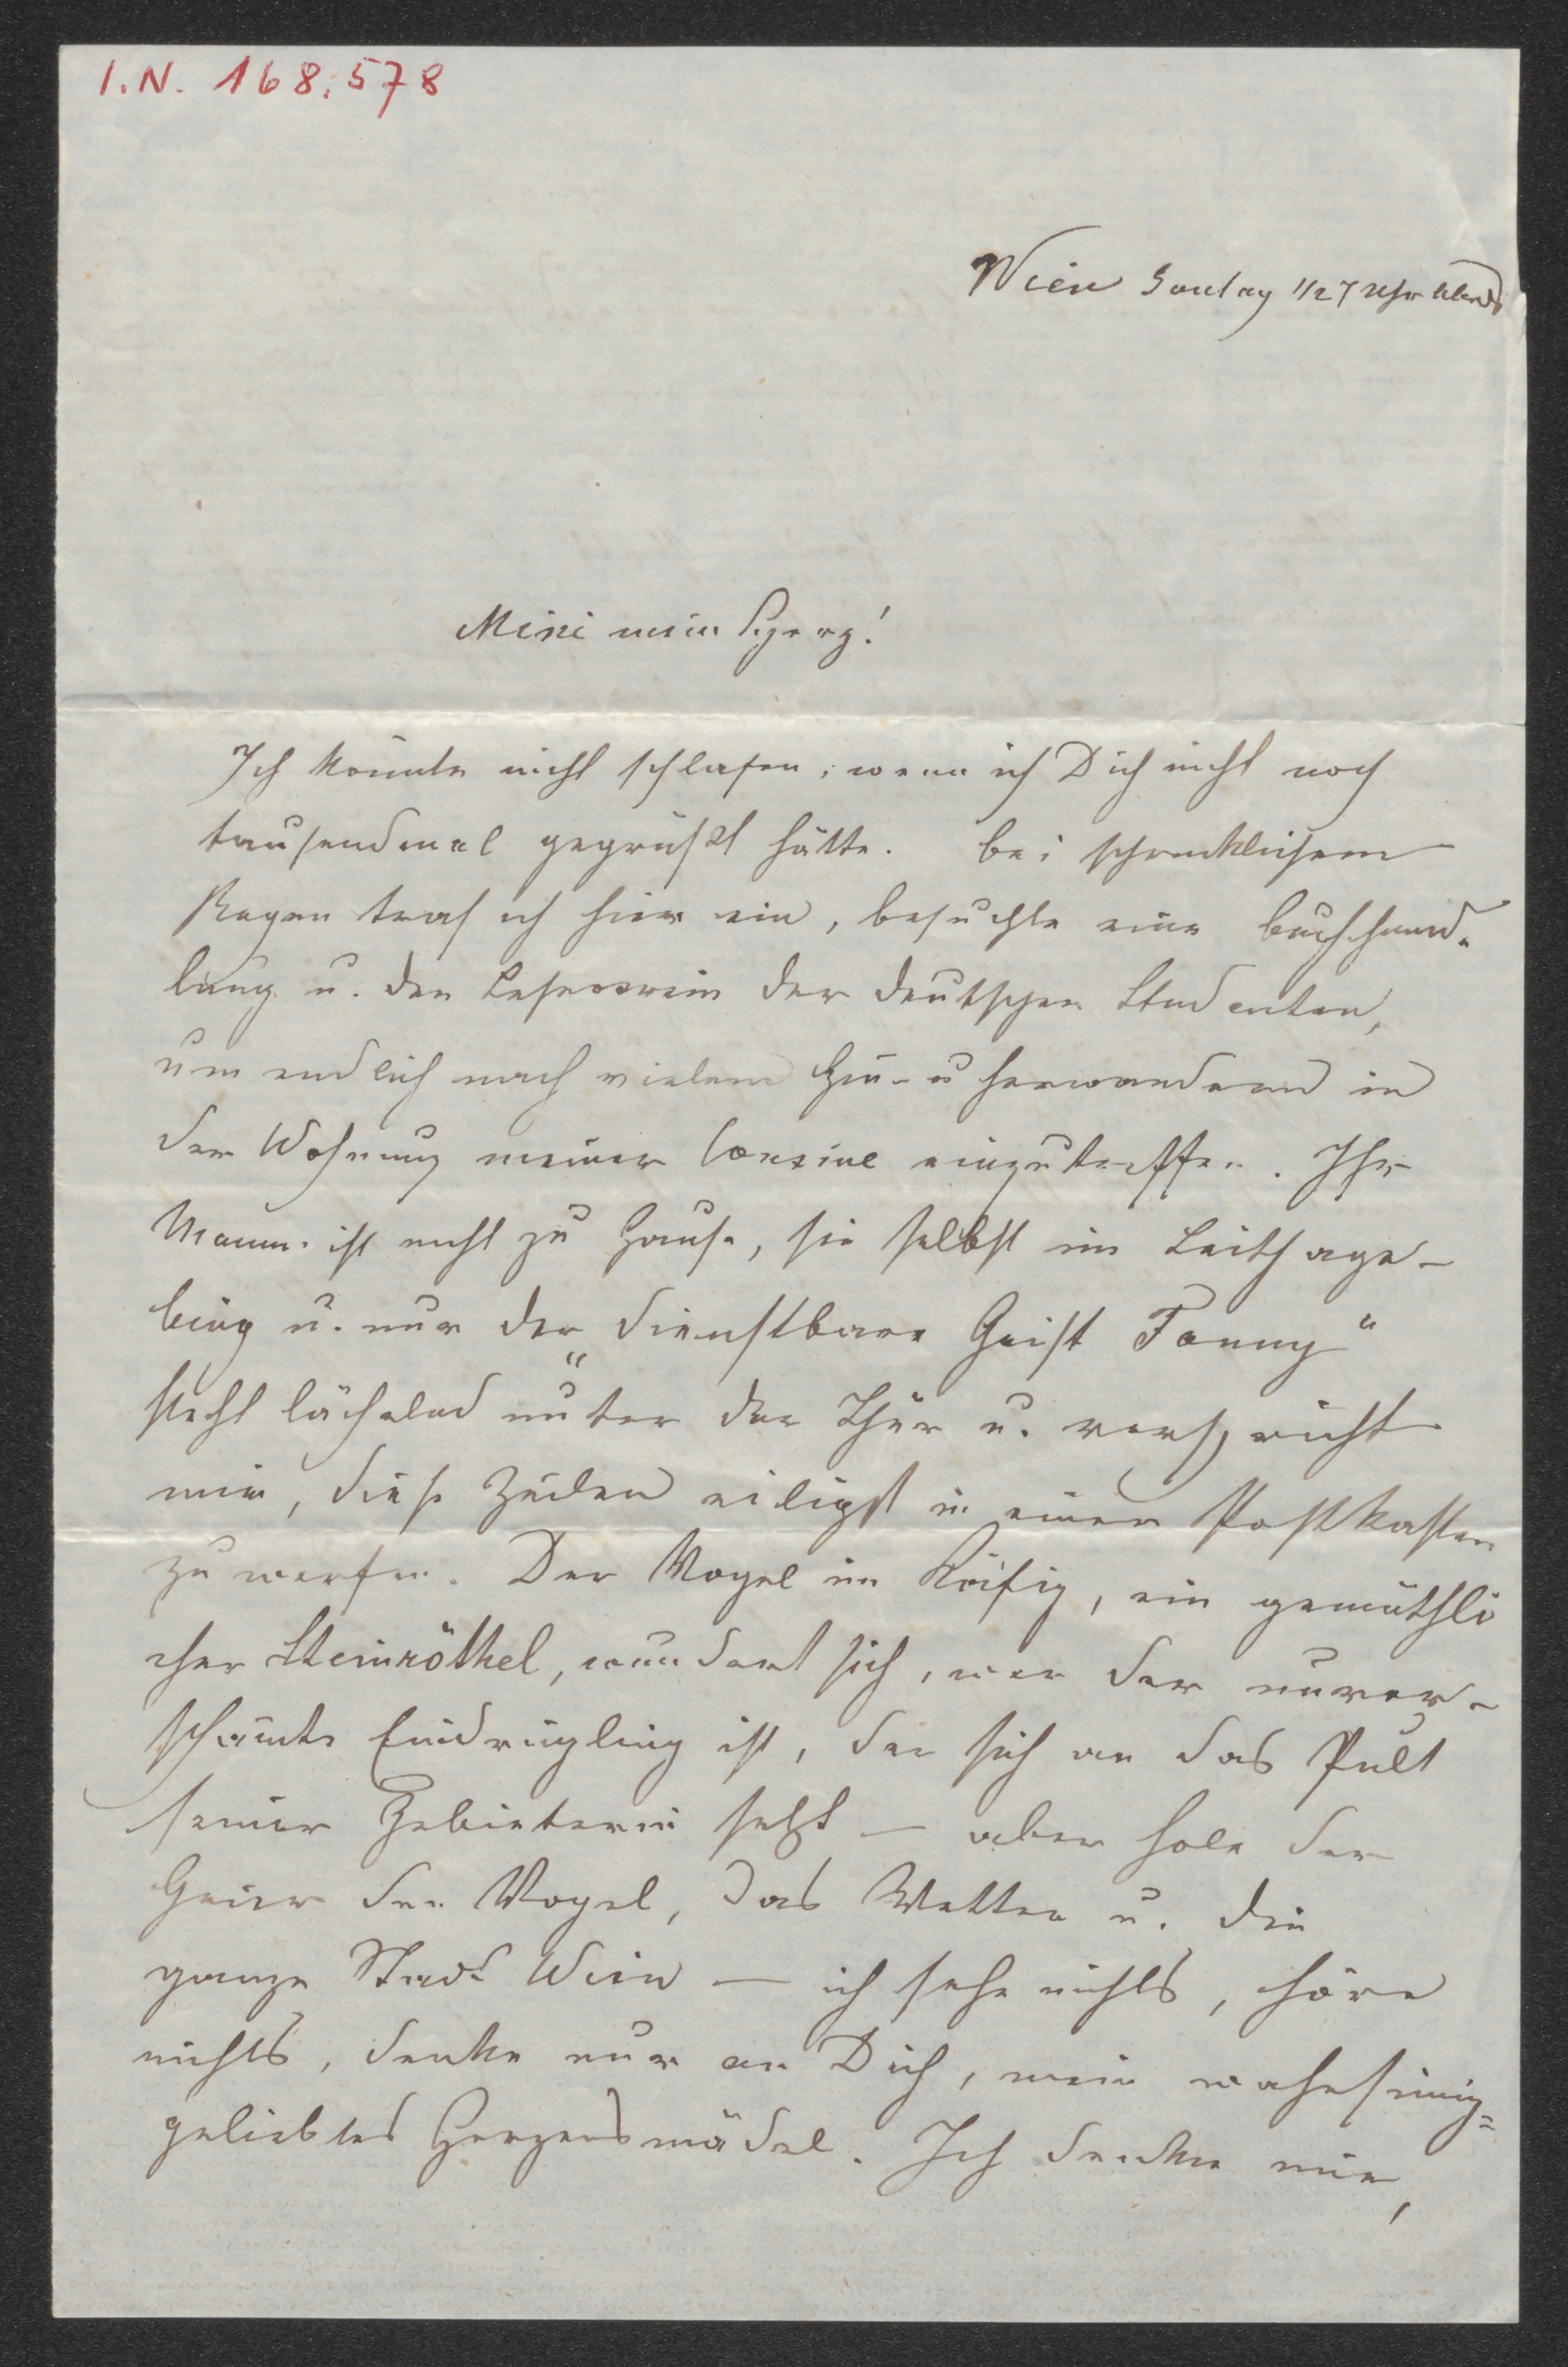 I.N. 168.578
Wien Sontag 1/2 7 Uhr Abends
Mini mein Herz!
Ich könnte nicht schlafen, wenn ich Dich nicht noch
tausendmal gegrüßt hätte. Bei schrecklichem
Regen traf ich hier ein, besuchte eine Buchhand-
lung u. den Leseverein der deutschen Studenten,
um endlich nach vielem Hin- u Herwandern in
der Wohnung meiner Cousine einzutreffen. Ihr
Mann ist nicht zu Hause, sie selbst im Leithage-
birg u. nur der „dienstbare Geist Fanny“
steht lächelnd unter der Thür u. verspricht
mir, diese Zeilen eiligst in einen Postkasten
zu werfen. Der Vogel im Käfig, ein gemüthli
cher Steinröthel, wundert sich, wer der unver-
schämte Eindringling ist, der sich an das Pult
seiner Gebieterin setzt — aber hole der
Geier den Vogel, das Wetter u. die
ganze Stadt Wien — ich sehe nichts, höre
nichts, denke nur an Dich, mein wahnsinnig=
geliebtes Herzensmädel. Ich denke mir,